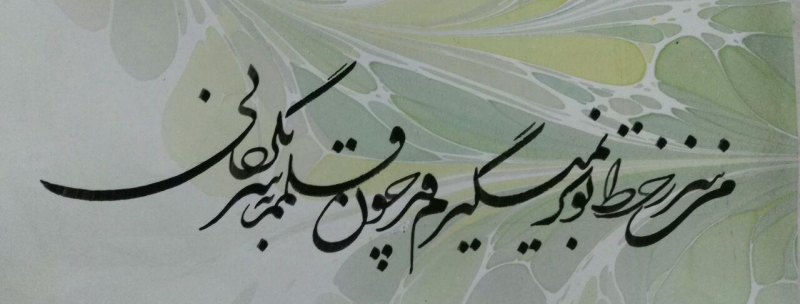 من سر ز خط تو بر نمیگیرم ور چون قلمم به سر بگردانی